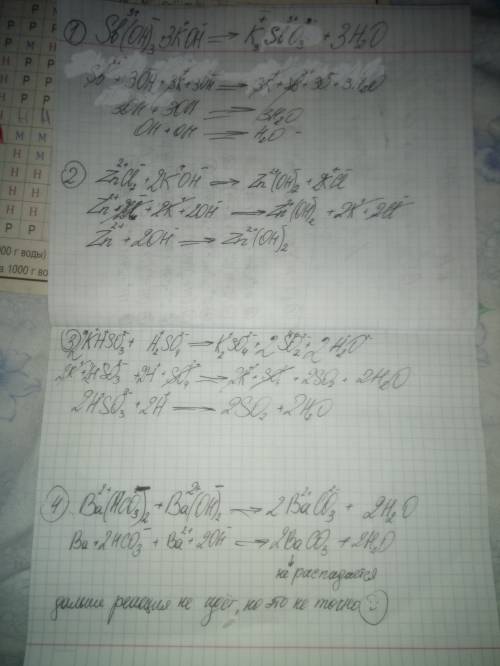 1) Sb(OH)₃ + 3KOH ⇒ K₃SbO₃ + 3H₂O
3OH + 3OH ⇒ 3H₂O
OH + OH ⇒ H₂O
2) ZnCl₂ + 2KOH → Zn(OH)₂ + 2KCl
Zn²⁺ + 2Cl⁻ + 2K⁺ + 2OH⁻ → Zn(OH)₂ + 2K⁺ + 2Cl⁻
Zn²⁺ + 2OH⁻ → Zn(OH)₂
3) 2KHSO₃ + H₂SO₄ → K₂SO₄ + 2SO₂ + 2H₂O
2K⁺ + 2HSO₃⁻ + 2H⁺ + SO₄²⁻ → 2K⁺ + SO₄²⁻ + 2SO₂ + 2H₂O
2HSO₃⁻ + 2H⁺ → 2SO₂ + 2H₂O
4) Ba(HCO₃)₂ + Ba(OH)₂ → 2BaCO₃ + 2H₂O
Ba + 2HCO₃⁻ + Ba²⁺ + 2OH⁻ → 2BaCO₃ + 2H₂O
не распадается
дальше реакция не идёт, но это не точно
000 г воды)
а 1000 г во
Р
Р
Н
М
М
М
Н
Н
Н
Н
Р
Р